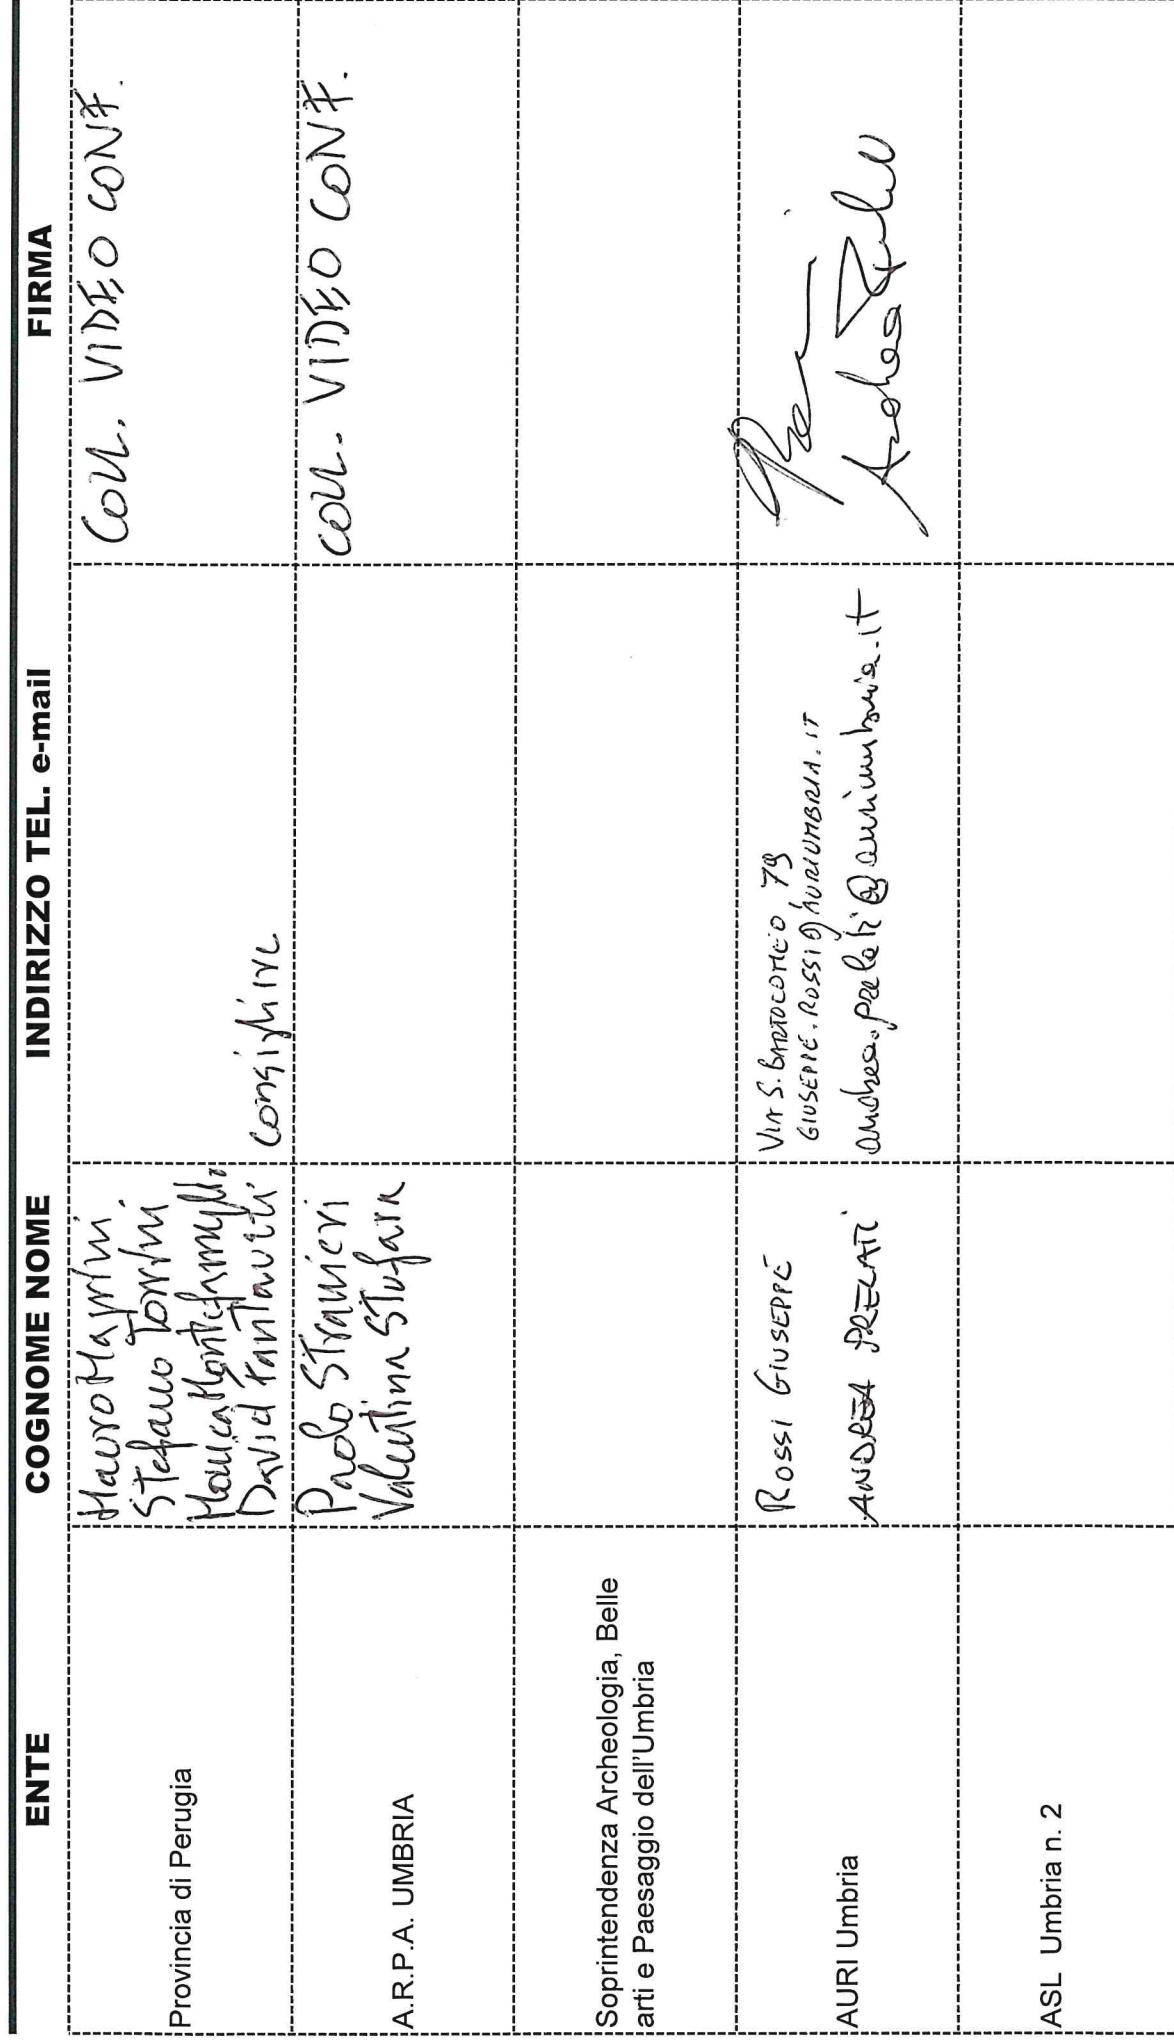 ENTE COGNOME NOME INDIRIZZO TEL. e-mail FIRMA
Provincia di Perugia
Mauro Magrini
Stefano Torrini
Monica
David Fantauzzi
consigliere
COLL. VIDEO CONF.
A.R.P.A. UMBRIA
Paolo Stranieri
Valentina Stufara
COLL. VIDEO CONF.
Soprintendenza Archeologia, Belle
arti e Paesaggio dell'Umbria
AURI Umbria
ROSSI GIUSEPPE
VIA S. BARTOLOMEO, 79
GIUSEPPE.ROSSI@AURIUMBRIA.IT
ANDREA PRELATI
andrea.prelati@auriumbria.it
Andrea Prelati
ASL Umbria n. 2